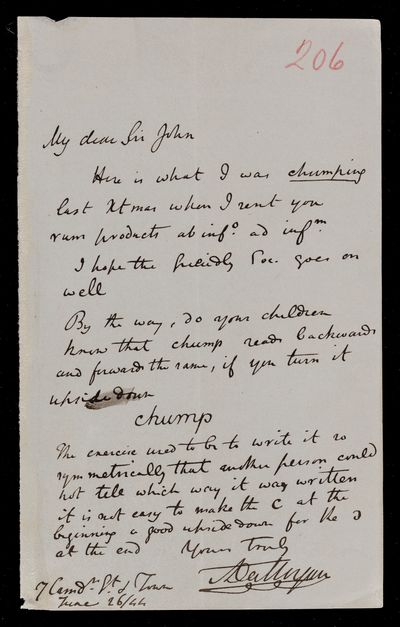 206
My dear Sir John
Here is what I was chumping
last Xtmas when I sent you
rum products ab inf.o ad inf.m
I hope the friendly Soc. goes on
well
By the way, do your children
know that chump reads backwards
and forwards the same, if you turn it
upside down
chump
The exercise used to be to write it so
symmetrically that another person could
not tell which way it was written
it is not easy to make the c at the
beginning a good upside down for the ɔ
at the end Yours truly
ADeMorgan
7 Camdn St. C Town
June 26/44